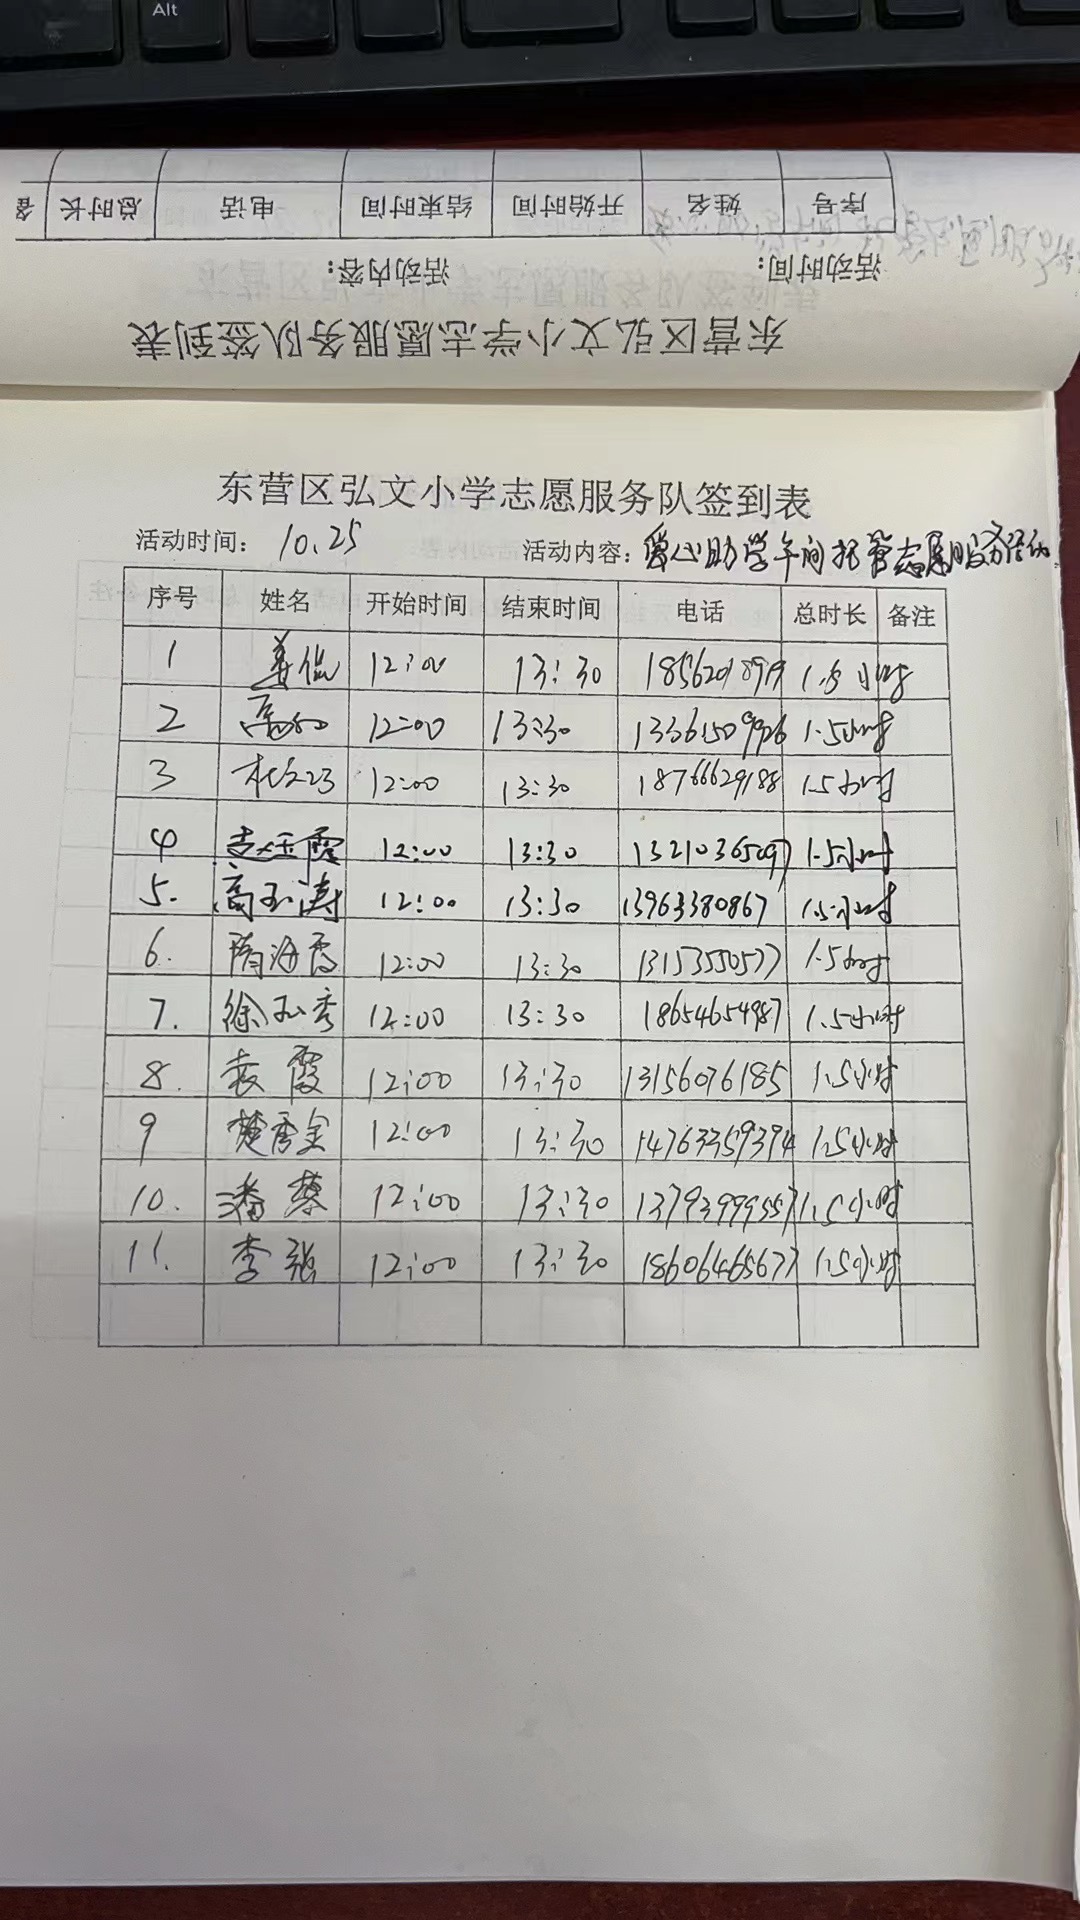 Alt
序号 姓名 开始时间 结束时间 电话 总时长 备
活动时间： 活动内容：
东营区弘文小学志愿服务队签到表
东营区弘文小学志愿服务队签到表
活动时间： 10.25 活动内容：爱心助学午间托管志愿服务活动
序号 姓名 开始时间 结束时间 电话 总时长 备注
1 姜 12:00 13:30 1.5小时
2 高 12:00 13:30 1.5小时
3 杜 12:00 13:30 18766629188 1.5小时
4 赵玉霞 12:00 13:30 13210365097 1.5小时
5. 高玉涛 12:00 13:30 13963380867 1.5小时
6. 隋海霞 12:00 13:30 13153550577 1.5小时
7. 徐玉秀 12:00 13:30 18654654987 1.5小时
8. 袁霞 12:00 13:30 13156076185 1.5小时
9 楚秀全 12:00 13:30 14763359394 1.5小时
10. 潘攀 12:00 13:30 13793999557 1.5小时
11. 李强 12:00 13:30 18606465677 1.5小时